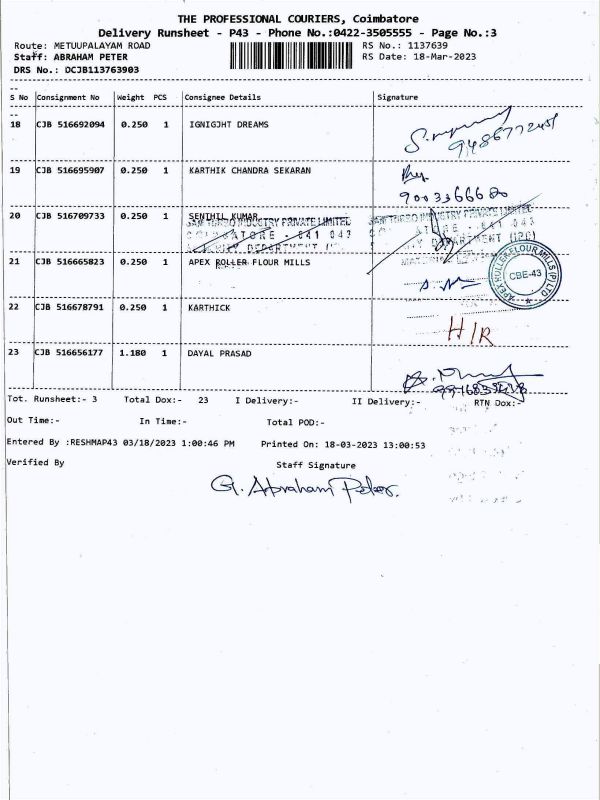 THE PROFESSIONAL COURIERS, Coimbatore
Delivery Runsheet - P43 - Phone No.:0422-3505555 - Page No.:3
Route: METUUPALAYAM ROAD RS No.: 1137639
Staff: ABRAHAM PETER RS Date: 18-Mar-2023
DRS No.: DCJB113763903
S No Consignment No Weight PCS Consignee Details Signature
18 CJB 516692094 0.250 1 IGNIGJHT DREAMS
19 CJB 516695907 0.250 1 KARTHIK CHANDRA SEKARAN
9003366680
20 CJB 516709733 0.250 1 SENTHIL KUMAR
INDUSTRY PRIVATE LIMITED
21 CJB 516665823 0.250 1 APEX ROLLER FLOUR MILLS
CBE-43
22 CJB 516678791 0.250 1 KARTHICK
H/R
23 CJB 516656177 1.180 1 DAYAL PRASAD
Tot. Runsheet:- 3 Total Dox:- 23 I Delivery:- II Delivery:- RTN Dox:-
Out Time:- In Time:- Total POD:-
Entered By :RESHMAP43 03/18/2023 1:00:46 PM Printed On: 18-03-2023 13:00:53
Verified By Staff Signature
G. Abraham Peter.